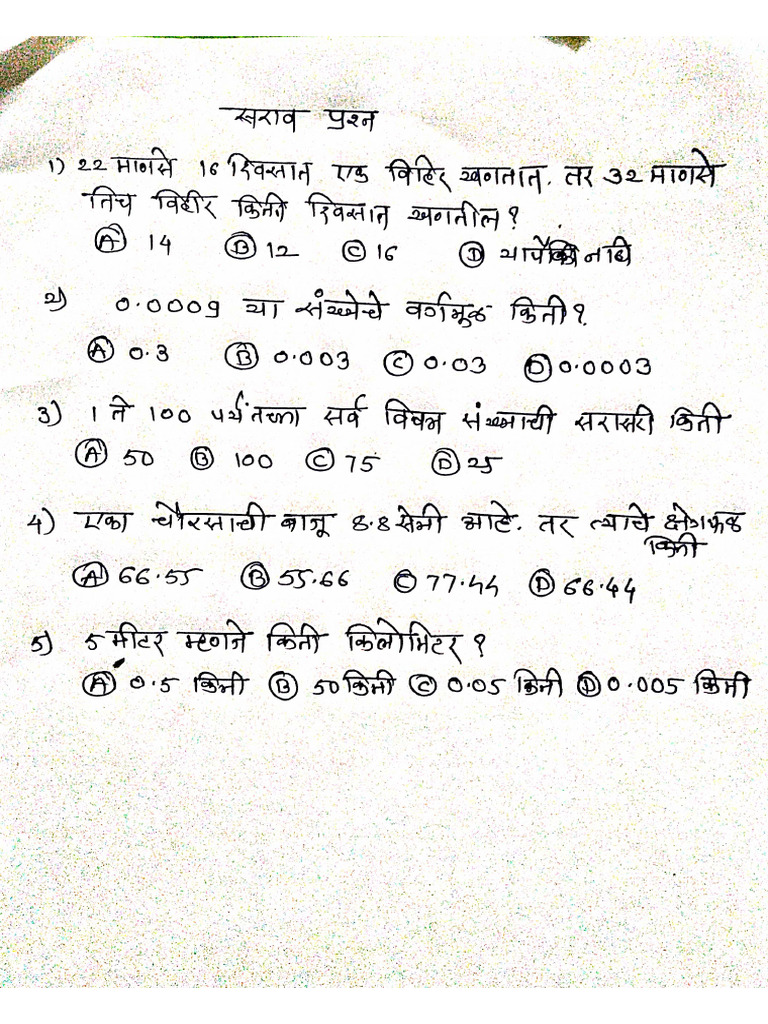 सराव प्रश्न
1) 22 माणसे 16 दिवसात एक विहिर खणतात. तर 32 माणसे
तिच विहीर किती दिवसात खणतील?
Ⓐ 14 Ⓑ 12 Ⓒ 16 Ⓓ यापैकी नाही
2) 0.0009 या संख्येचे वर्गमुळ किती?
Ⓐ 0.3 Ⓑ 0.003 Ⓒ 0.03 Ⓓ 0.0003
3) 1 ते 100 पर्यंतच्या सर्व विषम संख्याची सरासरी किती
Ⓐ 50 Ⓑ 100 Ⓒ 75 Ⓓ 25
4) एका चौरसाची बाजू 8.8 सेमी आहे. तर त्याचे क्षेत्रफळ
किती
Ⓐ 66.55 Ⓑ 55.66 Ⓒ 77.44 Ⓓ 66.44
5) 5 मीटर म्हणजे किती किलोमिटर?
Ⓐ 0.5 किमी Ⓑ 50 किमी Ⓒ 0.05 किमी Ⓓ 0.005 किमी